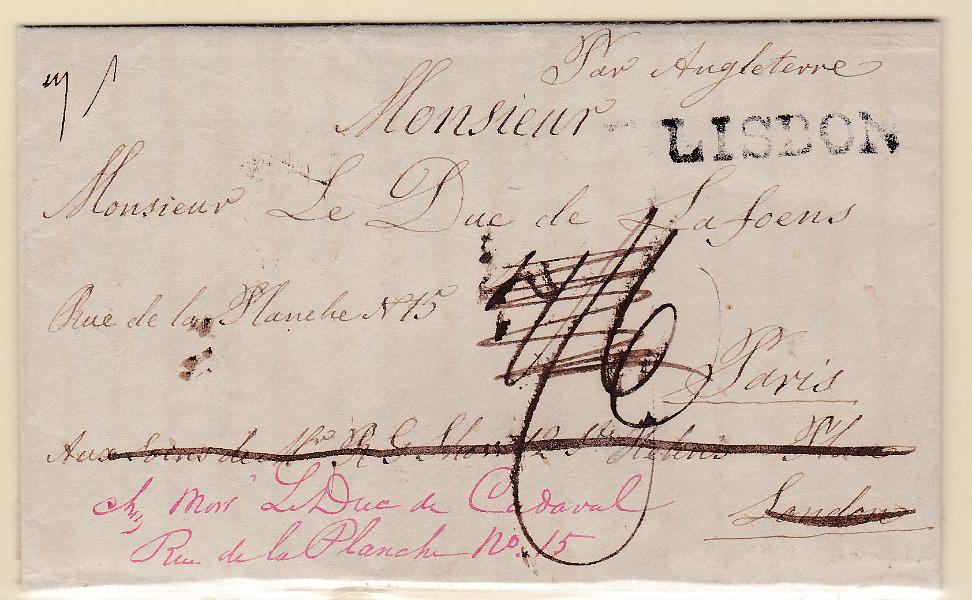 Par Angleterre
Monsieur
LISBON
Monsieur Le Duc de Lafoens
Rue de la Planche No 15
7/6
Paris
Aux Soins de Mr R G St Helens
London
chez Monr Le Duc de Cadaval
Rue de la Planche No. 15